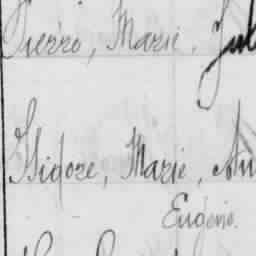 Pierre, Marie, Jul
Isidore, Marie, Au
Eugénie.